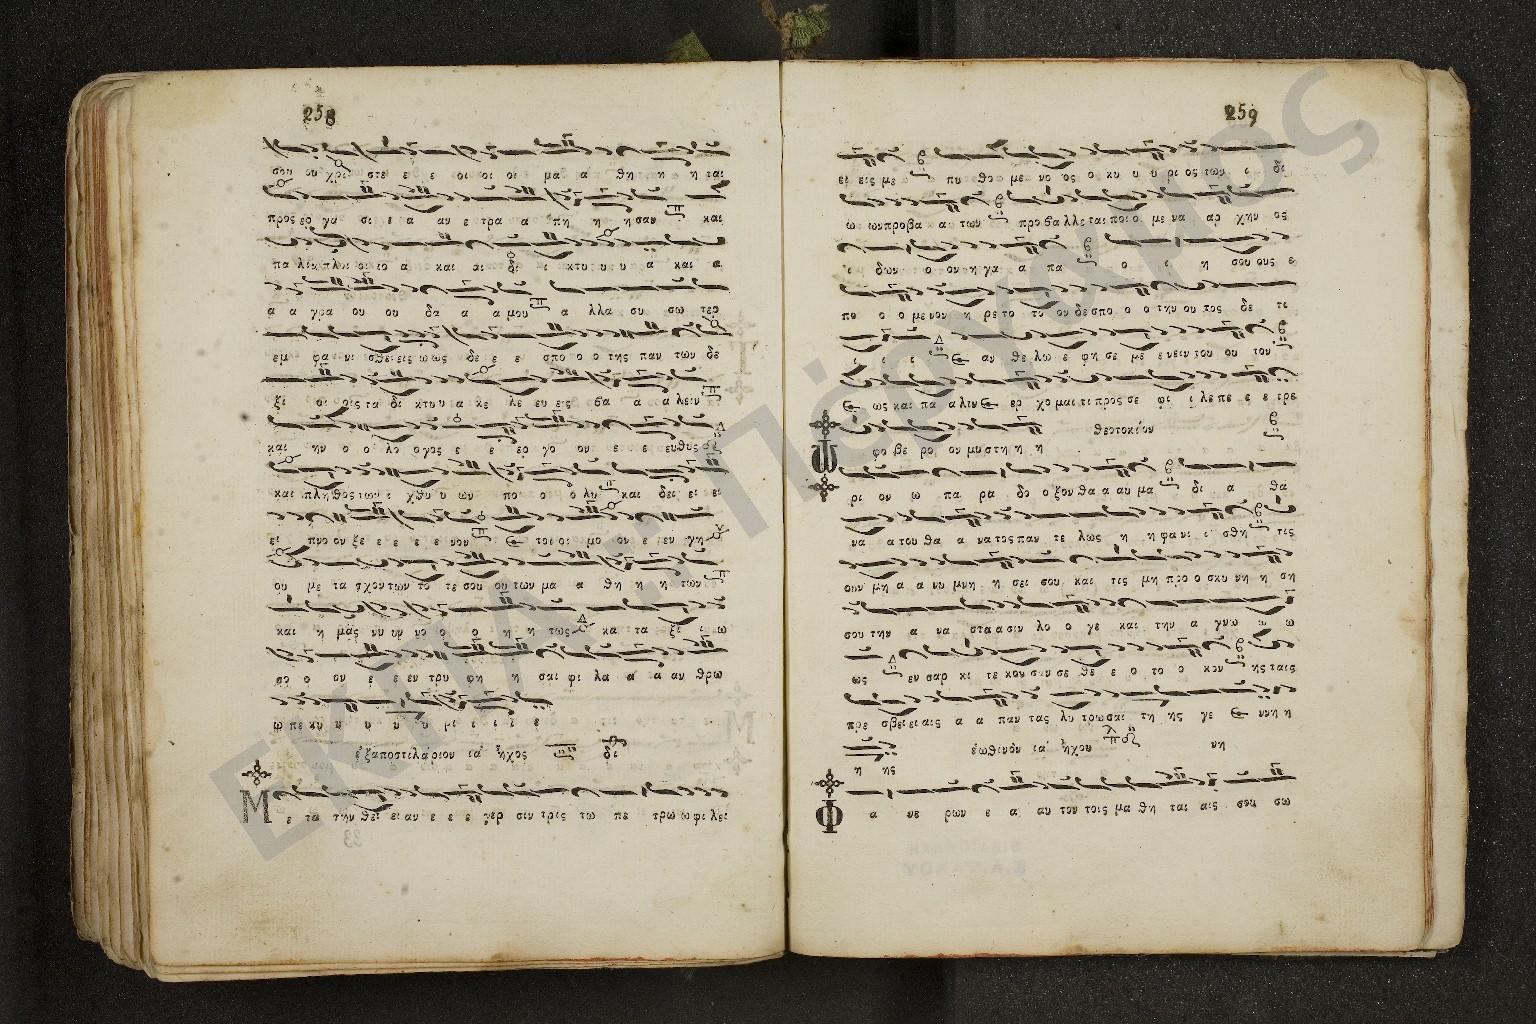 258
σου ου χρι στε ε ε οι οι οι μα α θη η η ται
προς ερ γα σι ε α αν ε τρα α πη η η σαν και
πα λιν πλοι οι οι ο α και αι δι ι κτυ υ υ υ α και α
α α γρα ου ου δα α α μου α λλα συ σω τερ
εμ φα νι σθει εις ω ως δε ε ε σπο ο ο της παν των δε
ξι οι οις τα δι κτυ υ α κε λε ευ εις βα α α λειν
και ην ο ο λο ο γος ε ε ερ γο ον ε ε ευθυς
και πλη θος των ι χθυ υ ων πο ο ο λυ και δει ει ει
ει πνο ον ξε ε ε ε ε νον ε τοι οι μο ον ε ιεν γη
ου με τα σχον των το τε σου ου των μα α θη η η των
και η μας νυ υν νο ο ο η η τως κα τα ξι ι ω
σο ο ον ε ε εν τρυ φη η σαι φι λα α α αν θρω
ω πε κυ υ υ υ υ ρι ι ι ι ε
ἐξαποστιλάριον ια΄ ἦχος δι
Μ ε τα την θει ει αν ε ε ε γερ σιν τρις τω πε τρω ω φι λει
259
ει εις με πυ θο με νο ος ο κυ υ υ ρι ος των ι δι
ω ων προ βα α των προ βα λλε ται ποι ο με να αρ χην ος
ι δων ο ον η γα α πα ο ι η σου ους ε
πο ο ο με νον η ρε το το ον δε σπο ο ο την ου τος δε τι
ι ι ι ε αν θε λω ε φη σε με ε νειν του ου τον
ε ως και πα α λιν ε ερ χο μαι τι προς σε φι ι λε πε ε ε τρε
θεοτοκίον
ω φο βε ρο ον μυ στη η η
ρι ον ω πα ρα δο ο ξον θα α αυ μα δι α θα
να α του θα α να τος παν τε λως η η φα νι ι σθη τις
ουν μη α α νυ μνη η σει σου και τις μη προ ο σκυ νη η ση
σου την α να στα α σιν λο ο γε και την α γνω ω ω
ως εν σαρ κι τε κου σαν σε θε ε ο το ο κον ης ταις
πρε σβει ει αις α α παν τας λυ τρω σαι τη ης γε ε ννη η
η ης ἑωθινὸν ια΄ ἦχου νη
Φ α νε ρων ε α αυ τον τοις μα θη ται αις σου σω